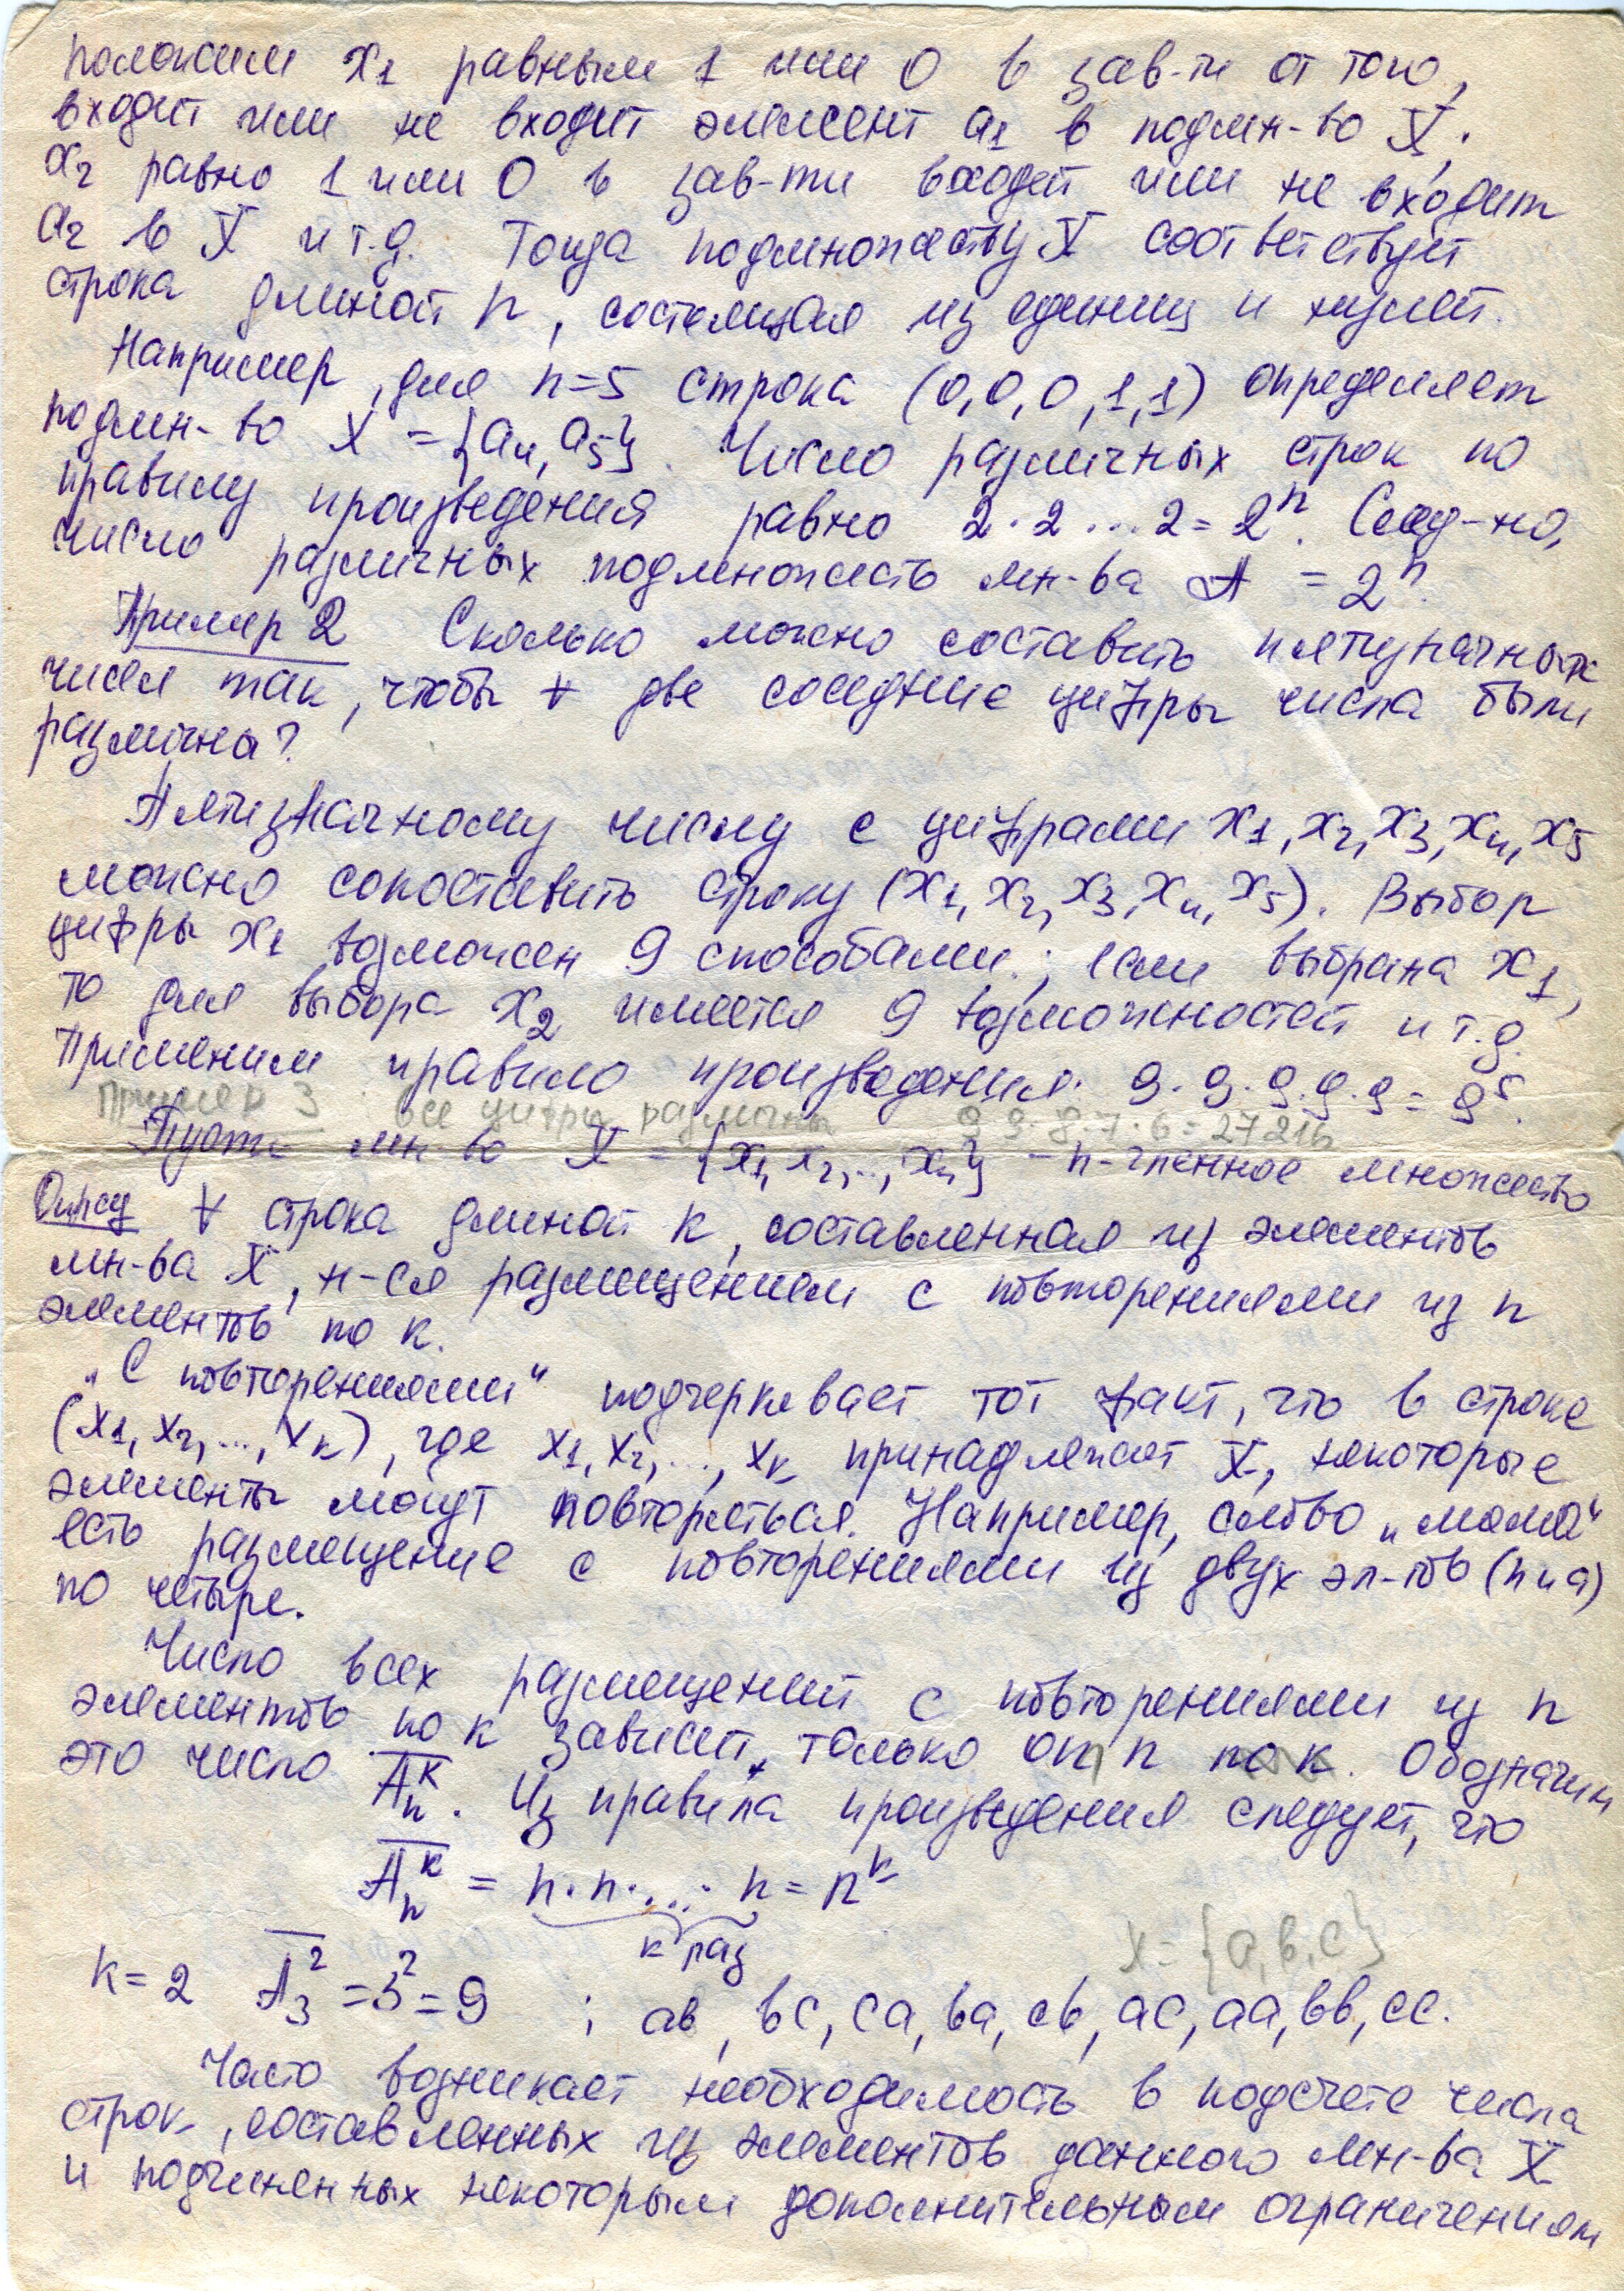 положим x₁ равным 1 или 0 в зав-ти от того,
входит или не входит элемент a₁ в подмн-во X,
x₂ равно 1 или 0 в зав-ти входит или не входит
a₂ в X и т.д. Тогда подмножеству X соответствует
строка длиной n, состоящая из единиц и нулей.
Например, для n=5 строка (0,0,0,1,1) определяет
подмн-во X = {a₄, a₅}. Число различных строк по
правилу произведения равно 2·2...2=2ⁿ. След-но,
число различных подмножеств мн-ва A = 2ⁿ.
Пример 2 Сколько можно составить пятизначных
чисел так, чтобы ∀ две соседние цифры числа были
различны?
Пятизначному числу с цифрами x₁, x₂, x₃, x₄, x₅
можно сопоставить строку (x₁, x₂, x₃, x₄, x₅). Выбор
цифры x₁ возможен 9 способами; если выбрана x₁,
то для выбора x₂ имеется 9 возможностей и т.д.
Применим правило произведения: 9·9·9·9·9=9⁵.
Пример 3 все цифры различны 9·9·8·7·6=27216
Пусть мн-во X = {x₁, x₂,..., xₙ} - n-членное множество
Опред ∀ строка длиной k, составленная из элементов
мн-ва X, н-ся размещением с повторениями из n
элементов по k.
„С повторениями“ подчеркивает тот факт, что в строке
(x₁, x₂,..., xₖ), где x₁, x₂,..., xₖ принадлежат X, некоторые
элементы могут повторяться. Например, слово „мама“
есть размещение с повторениями из двух эл-тов (м и а)
по четыре.
Число всех размещений с повторениями из n
элементов по k зависит только от n по k. Обозначим
это число A̅ₙᵏ. Из правила произведения следует, что
A̅ₙᵏ = n·n·...·n = nᵏ
k раз
X={a,b,c}
k=2 A̅₃² =3²=9 ; ab, bc, ca, ba, cb, ac, aa, bb, cc.
Часто возникает необходимость в подсчете числа
строк, составленных из элементов данного мн-ва X
и подчиненных некоторым дополнительным ограничениям